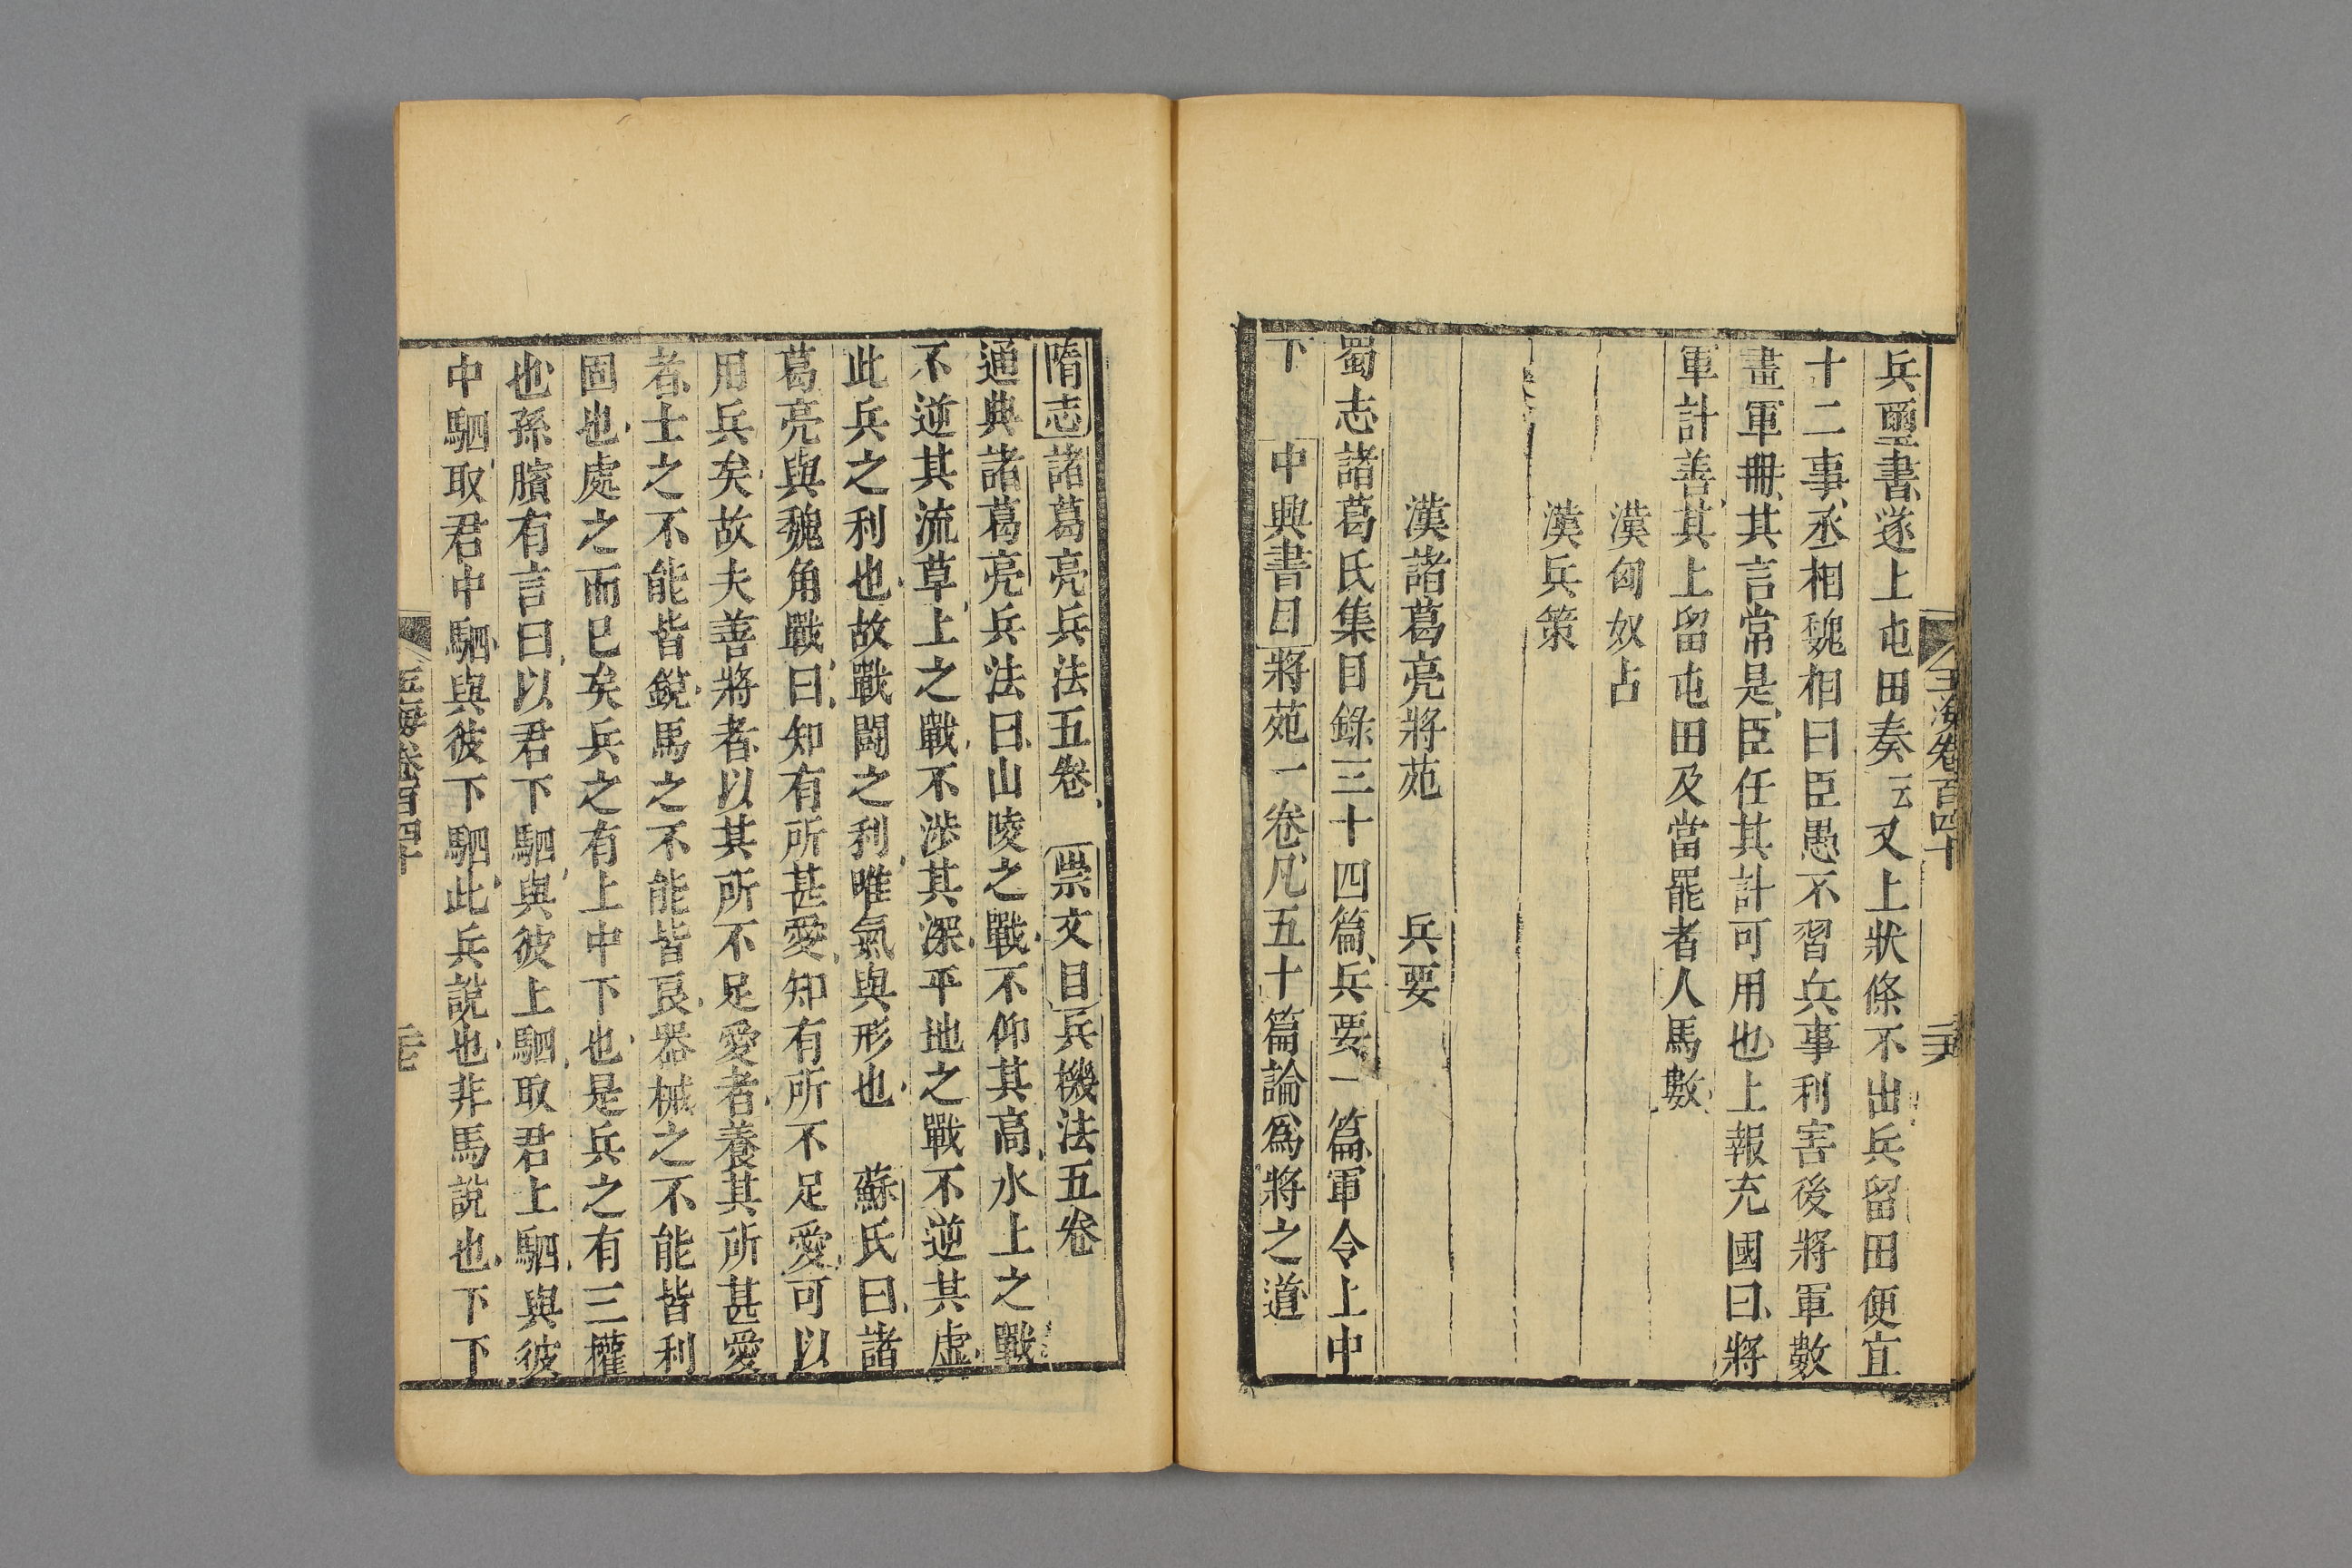 玉海卷百四十
兵璽書遂上屯田奏云又上狀條不出兵留田便宜
十二事丞相魏相曰臣愚不習兵事利害後將軍數
畫軍冊其言常是臣任其計可用也上報充國曰將
軍計善其上留屯田及當罷者人馬數
漢匈奴占
漢兵策
漢諸葛亮將苑 兵要
蜀志諸葛氏集目錄三十四篇兵要一篇軍令上中
下 中興書目將苑一卷凡五十篇論爲將之道
隋志諸葛亮兵法五卷 崇文目兵機法五卷
通典諸葛亮兵法曰山陵之戰不仰其高水上之戰
不逆其流草上之戰不涉其深平地之戰不逆其虛
此兵之利也故戰鬪之利唯氣與形也 蘇氏曰諸
葛亮與魏角戰曰知有所甚愛知有所不足愛可以
用兵矣故夫善將者以其所不足愛者養其所甚愛
者士之不能皆銳馬之不能皆良器械之不能皆利
固也處之而已矣兵之有上中下也是兵之有三權
也孫臏有言曰以君下駟與彼上駟取君上駟與彼
中駟取君中駟與彼下駟此兵說也非馬說也下下
玉海卷百四十